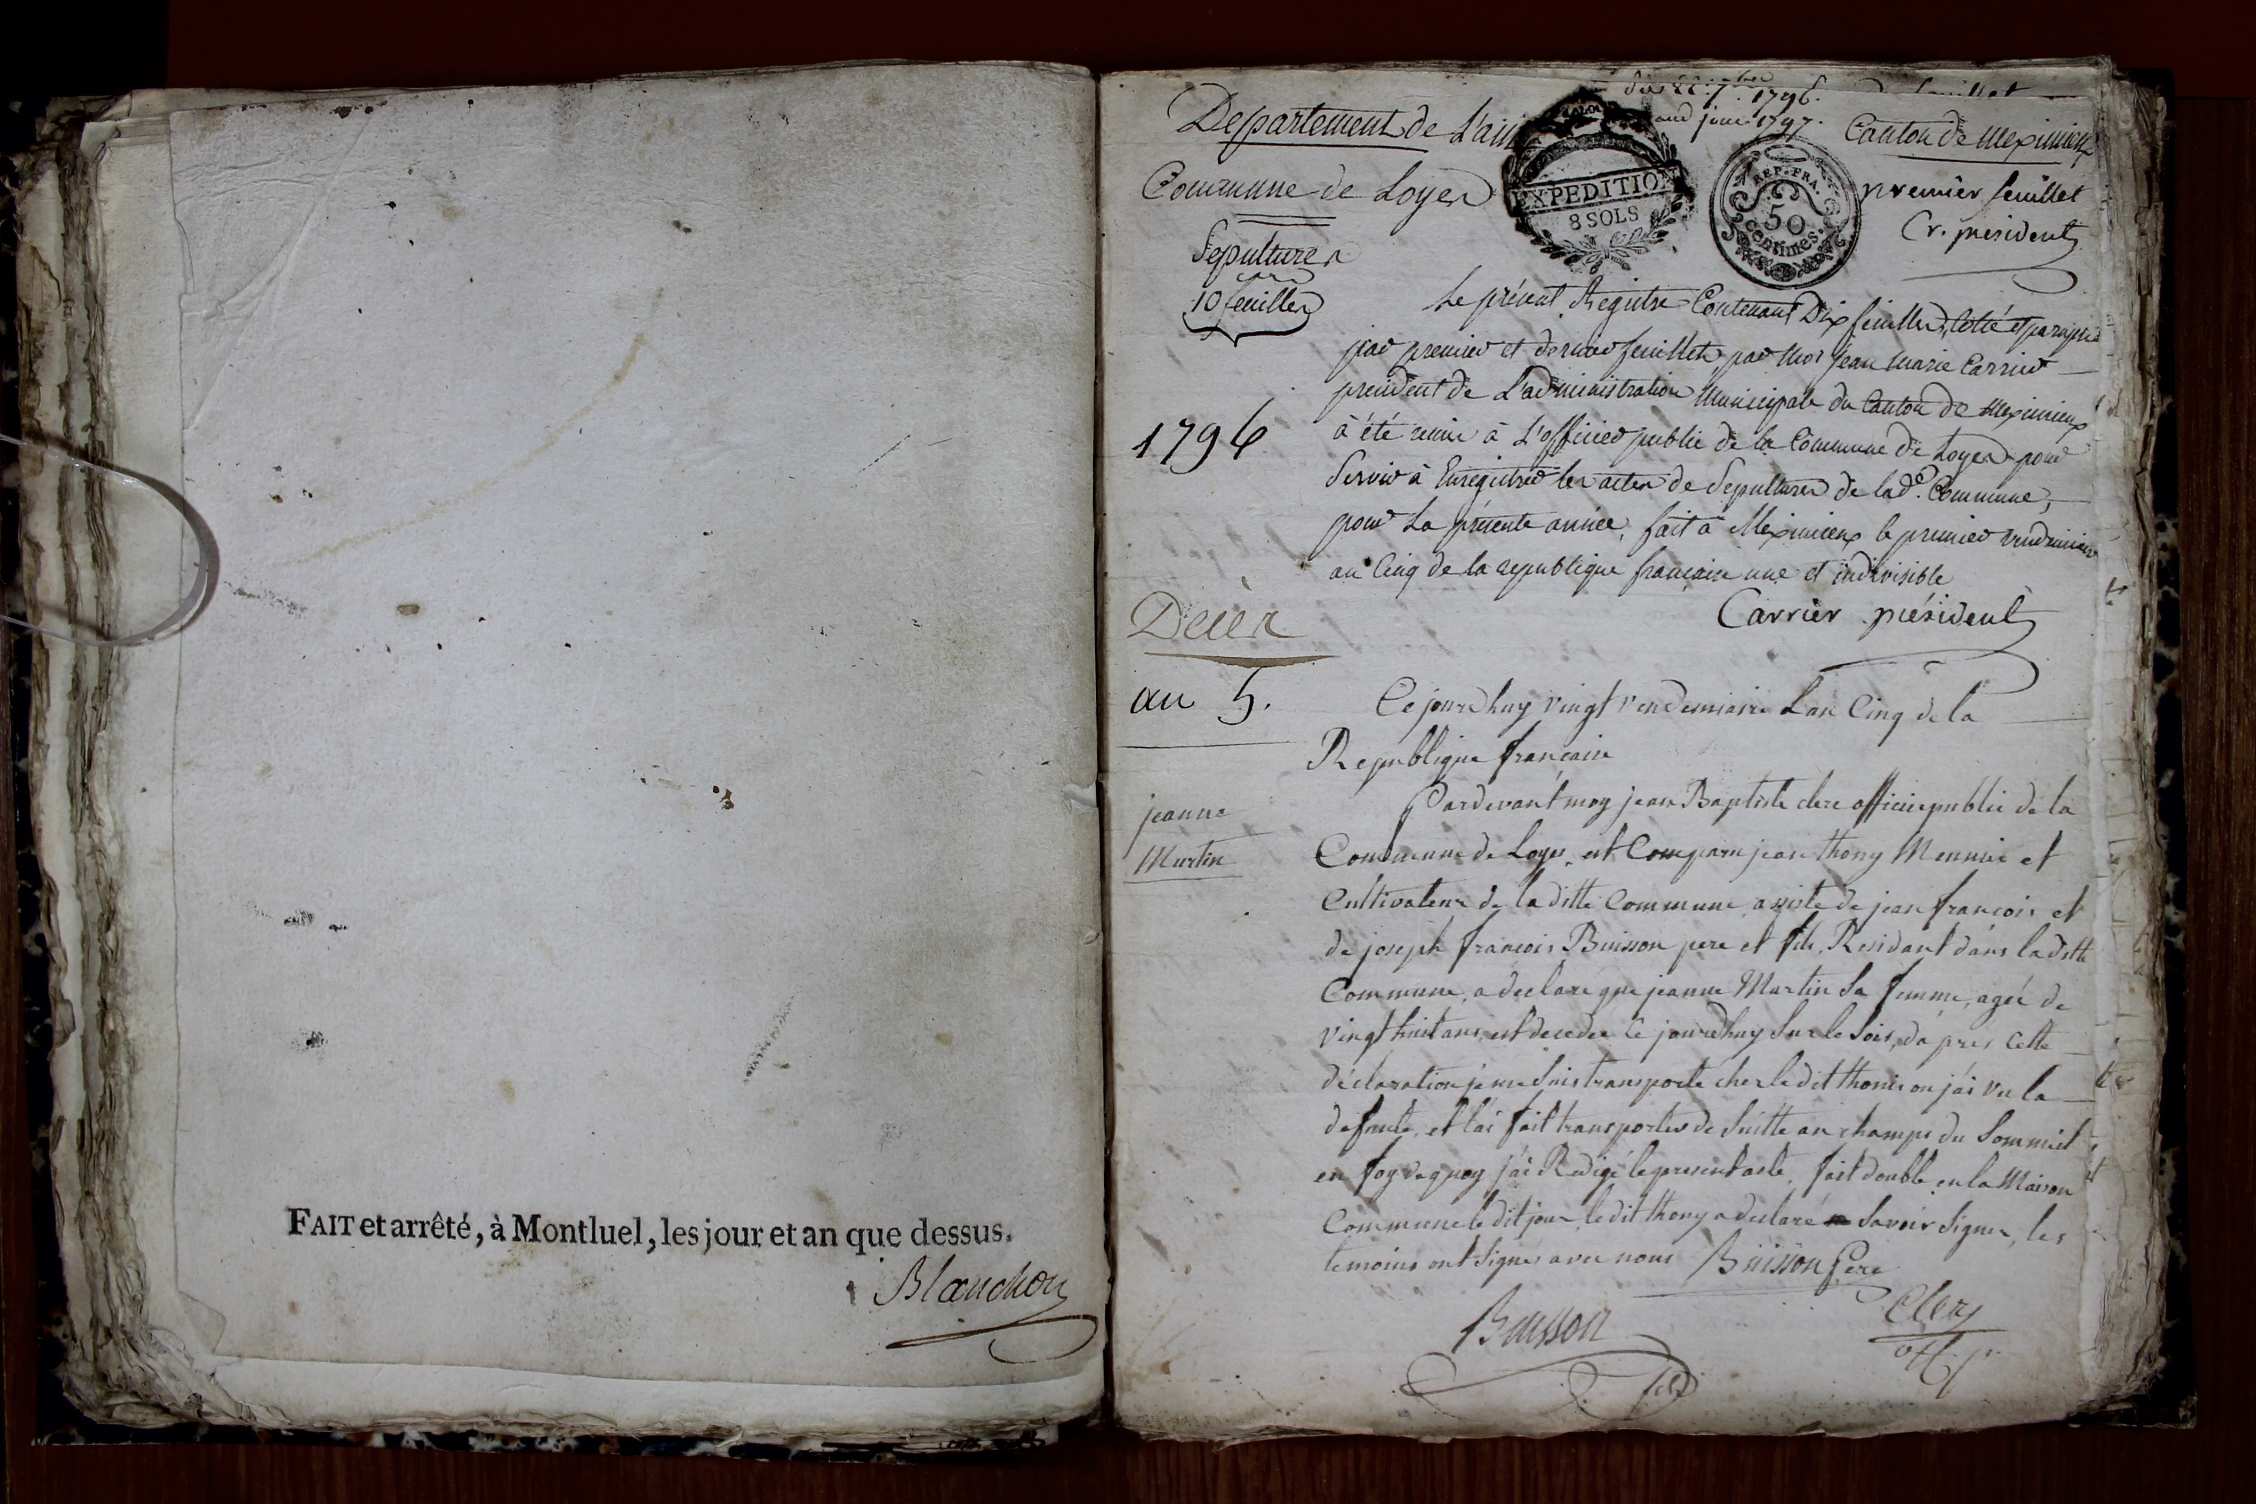 FAIT et arrêté, à Montluel, les jour et an que dessus.
Blanchon
1796.
1797.
Departement de L'ain
Canton de meximieux
Commune de Loyes
EXPEDITION
8 SOLS
REP. FRA.
50
centimes.
premier feuillet
Cr. président
Sepultures
10 feuilles
Le présent Registre Contenant Dix feuilles, Cotté et paraphé
par premier et dernier feuillet, par moi jean marie Carrier
president de L'administration Municipale du Canton de Meximieux
à été remis à L'officier public de la Commune de Loyes pour
Servir à Enregistrer les actes de Sepultures de lad.e Commune,
pour La présente année, fait à Meximieux le premier vendemiaire
an Cinq de la republique française une et indivisible
Carrier président
1796
Décès
an 5.
Ce jourdhuy vingt vendemiaire L'an Cinq de la
Republique française
jeanne
Martin
Pardevant moy jean Baptiste clerc officier public de la
Commune de Loyes, est Comparu jean thony Meunier et
Cultivateur de la ditte Commune assisté de jean francois et
de joseph francois Buisson pere et fils Residant dans la ditte
Commune, a declaré que jeanne Martin Sa femme, ageé de
vingt huit ans, est decedée Ce jourdhuy Sur le Soir, da pres Cette
déclaration je me Suis transporté chez le dit thonie ou j'ai vu la
defunte, et l'ai fait transporter de Suitte au champs du Sommeil
en foy de quoy j'ai Redigé le present acte, fait double en la Maison
Commune le dit jour, le dit thony a declaré Savoir Signer, les
temoins ont Signés avec nous Buisson Pere
Buisson
fils
Clerc
off. p.